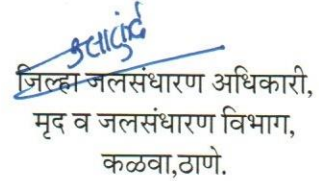 जिल्हा जलसंधारण अधिकारी,
मृद व जलसंधारण विभाग,
कळवा,ठाणे.